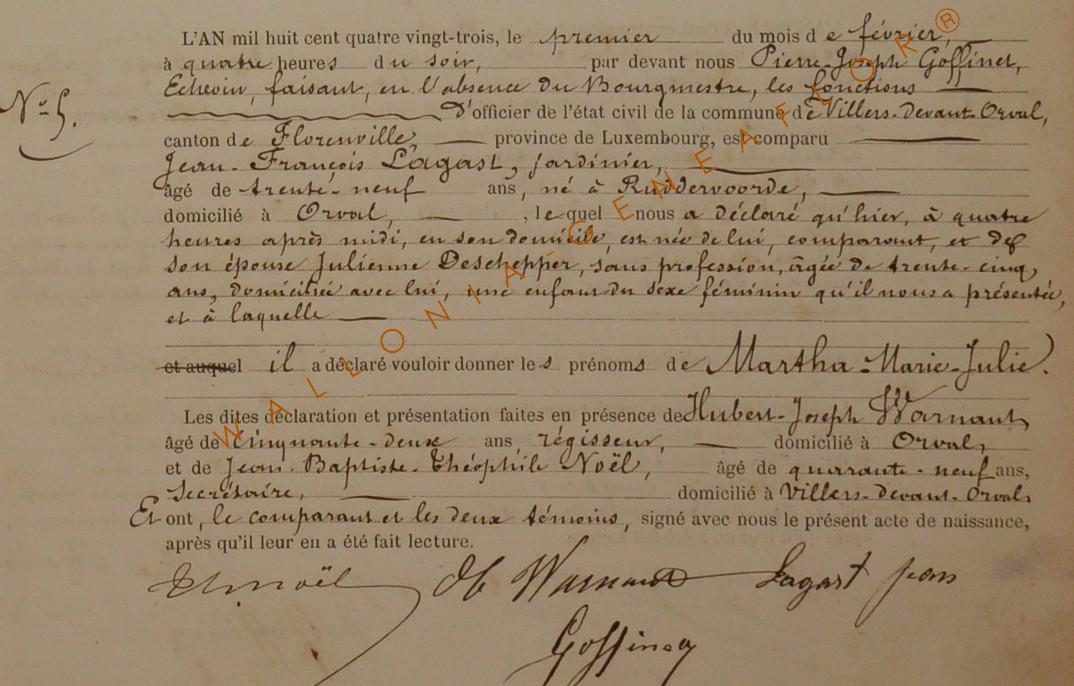 L'AN mil huit cent quatre vingt-trois, le premier du mois de février,
à quatre heures du soir, par devant nous Pierre-Joseph Goffinet,
Echevin, faisant, en l'absence du Bourgmestre, les fonctions
N° 5.
D'officier de l'état civil de la commune de Villers-devant-Orval,
canton de Florenville, province de Luxembourg, est comparu
Jean-François Lagast, jardinier,
âgé de trente-neuf ans, né à Ruddervoorde,
domicilié à Orval, , lequel nous a déclaré qu'hier, à quatre
heures après midi, en son domicile, est née de lui, comparant, et de
son épouse Julienne Deschepper, sans profession, âgée de trente-cinq
ans, domiciliée avec lui, une enfant du sexe féminin qu'il nous a présentée,
et à laquelle
et auquel il a déclaré vouloir donner les prénoms de Martha-Marie-Julie.
Les dites déclaration et présentation faites en présence de Hubert-Joseph Warnant,
âgé de cinquante-deux ans régisseur, domicilié à Orval,
et de Jean-Baptiste-Théophile Noël, âgé de quarante-neuf ans,
secrétaire, domicilié à Villers-devant-Orval.
Et ont, le comparant et les deux témoins, signé avec nous le présent acte de naissance,
après qu'il leur en a été fait lecture.
Noël Warnant Lagast jean
Goffinet
WALLONIA GENEAFLOR ®